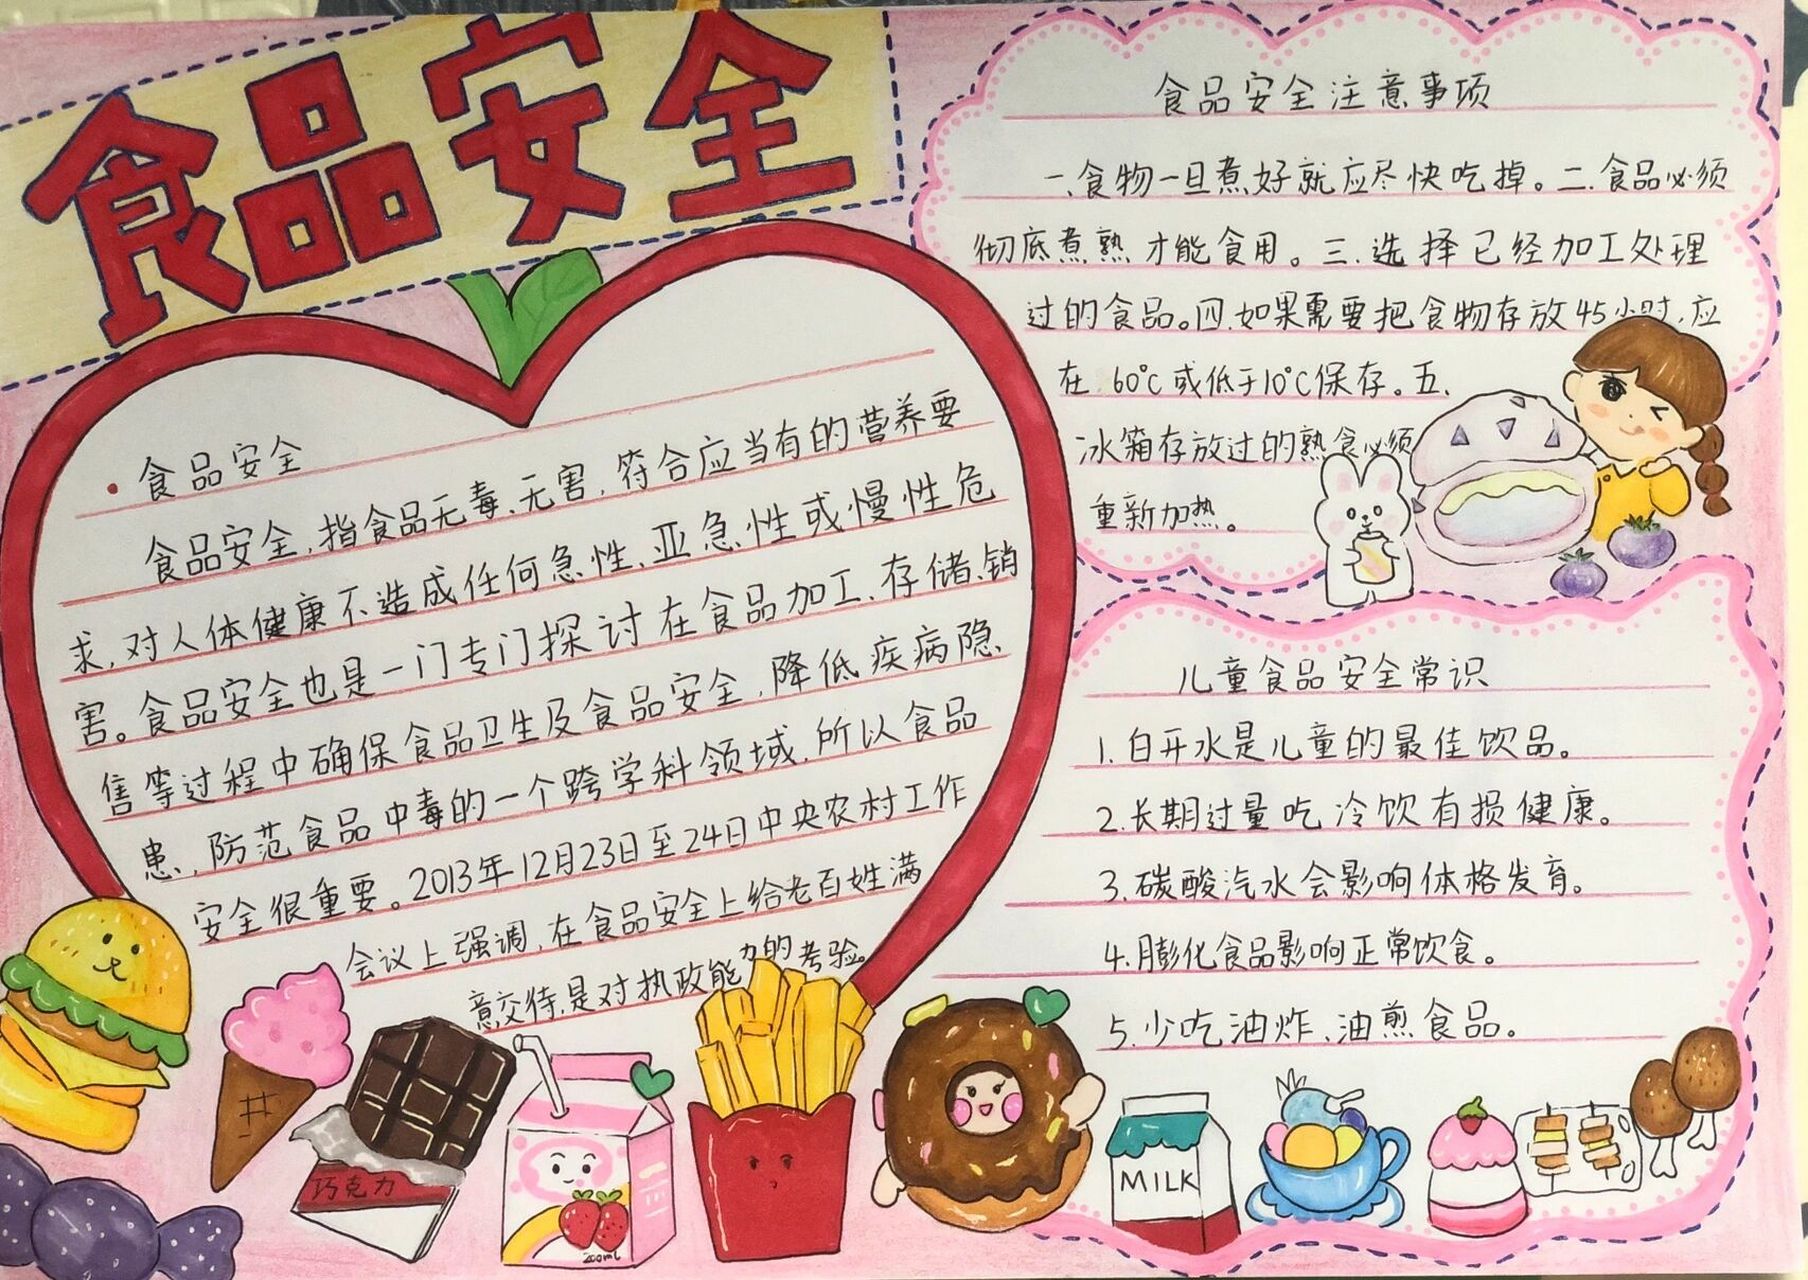 食品安全
食品安全
食品安全，指食品无毒、无害，符合应当有的营养要
求，对人体健康不造成任何急性、亚急性或慢性危
害。食品安全也是一门专门探讨在食品加工、存储、销
售等过程中确保食品卫生及食品安全，降低疾病隐
患，防范食品中毒的一个跨学科领域，所以食品
安全很重要。2013年12月23日至24日中央农村工作
会议上强调，在食品安全上给老百姓满
意交待，是对执政能力的考验。
食品安全注意事项
一、食物一旦煮好就应尽快吃掉。二、食品必须
彻底煮熟才能食用。三、选择已经加工处理
过的食品。四、如果需要把食物存放45小时，应
在60℃或低于10℃保存。五、
冰箱存放过的熟食必须
重新加热。
儿童食品安全常识
1.白开水是儿童的最佳饮品。
2.长期过量吃冷饮有损健康。
3.碳酸汽水会影响体格发育。
4.膨化食品影响正常饮食。
5.少吃油炸、油煎食品。
巧克力
200mL
MILK